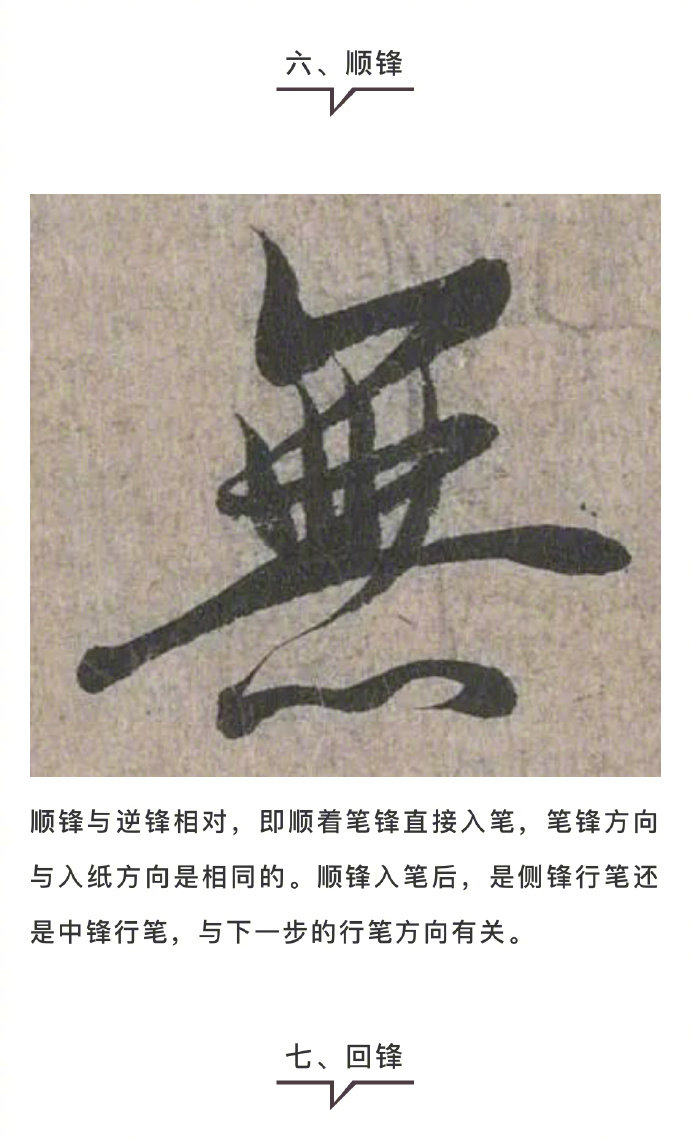 六、顺锋
無
顺锋与逆锋相对，即顺着笔锋直接入笔，笔锋方向
与入纸方向是相同的。顺锋入笔后，是侧锋行笔还
是中锋行笔，与下一步的行笔方向有关。
七、回锋